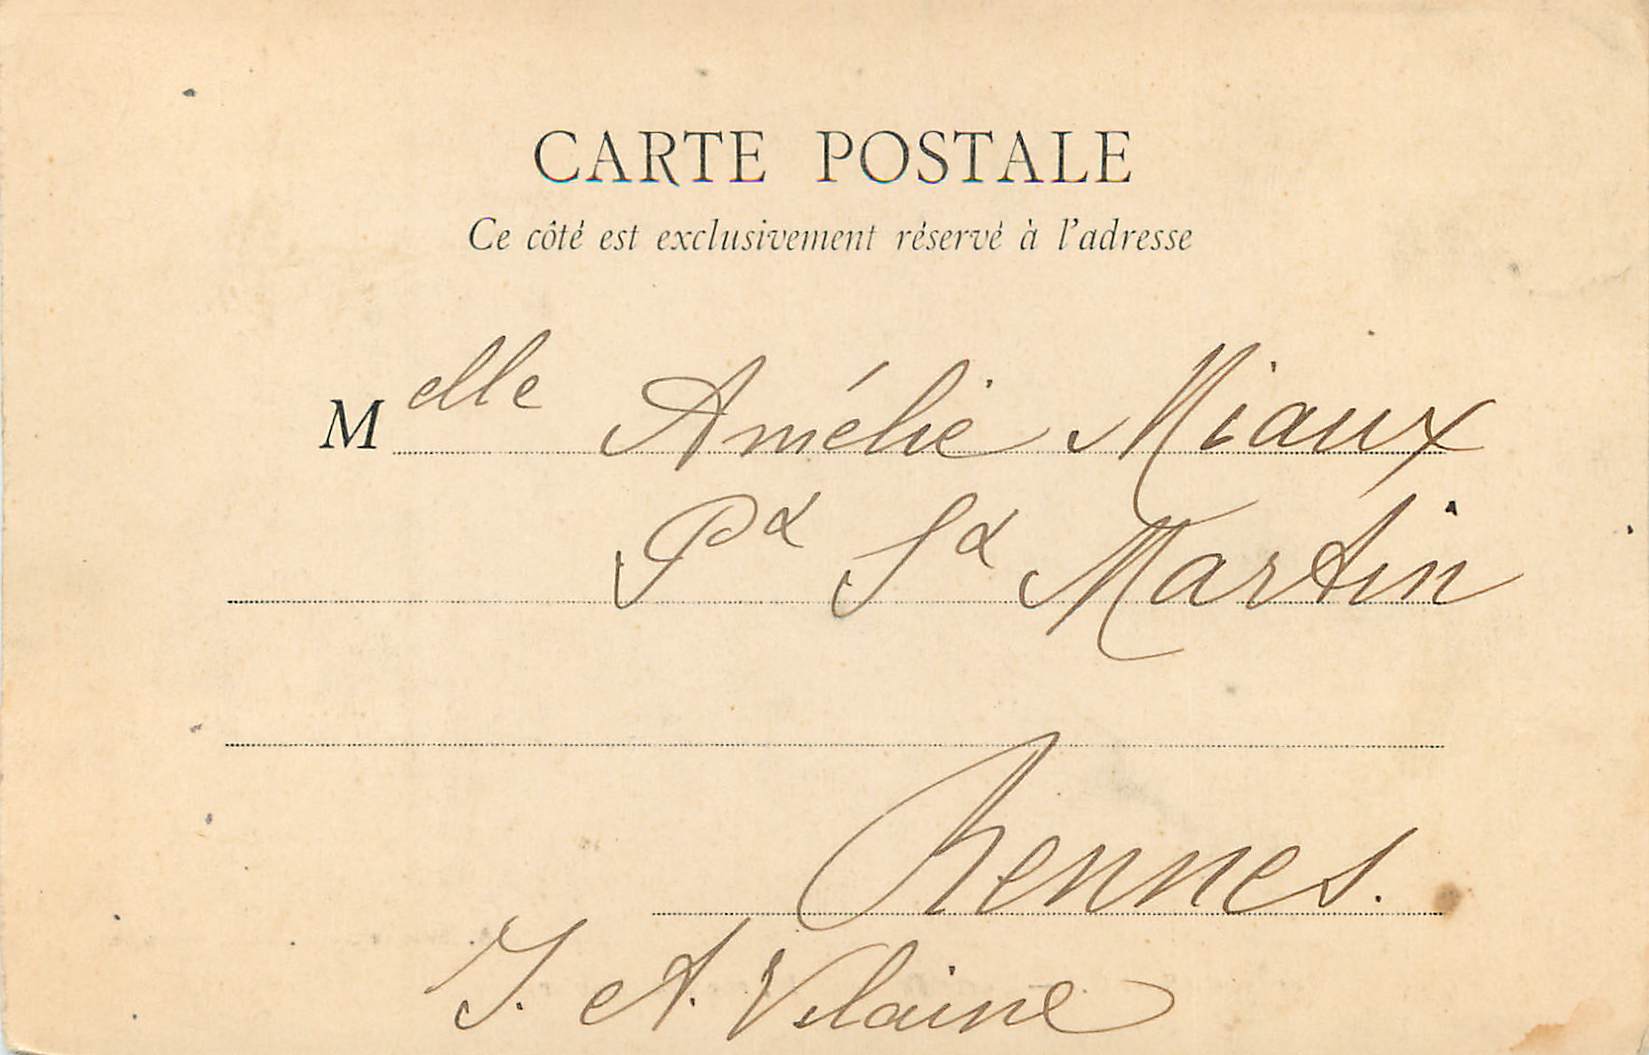 CARTE POSTALE
Ce côté est exclusivement réservé à l'adresse
Melle Amélie Miaux
Pt St Martin
Rennes.
I. et. Vilaine